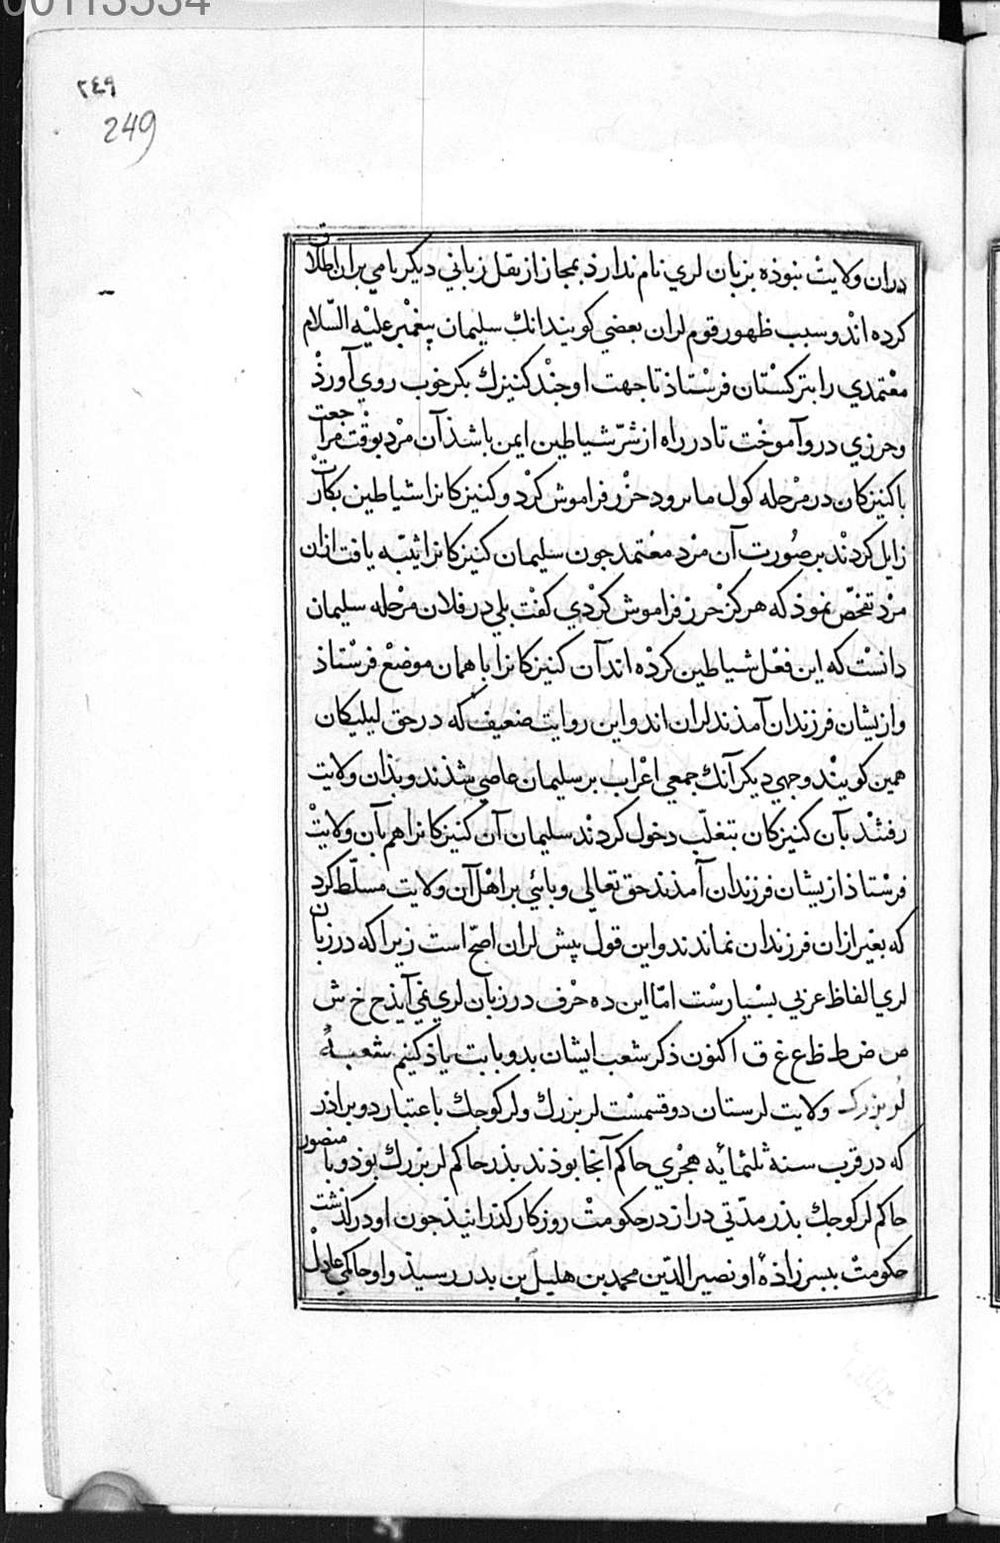 00113534
۲٤۹
249
دران ولایت نبوذه بزبان لري نام ندارذ بمجاز از نقل زباني دیکر نامي بران اطلاق
کرده اند و سبب ظهور قوم لران بعضي کویند انك سلیمان پیغمبر علیه السّلام
معتمدي را بترکستان فرستاذ تا جهت او جند کنیزك بکر خوب روي آورذ
و حرزي درو آموخت تا در راه از شرّ شیاطین ایمن باشذ آن مرد بوقت مراجعت
با کنیزکان در مرحله کول مانرود حرز فراموش کرد و کنیزکانرا شیاطین بکارت
زایل کردند بر صورت آن مرد معتمد جون سلیمان کنیزکانرا ثیّبه یافت ازان
مرد تفحّص نموذ که هرکز حرز فراموش کردي کفت بلي در فلان مرحله سلیمان
دانست که این فعل شیاطین کرده اند آن کنیزکانرا با همان موضع فرستاذ
و ازیشان فرزندان آمذند لران اند و این روایت ضعیف که در حق لیلیکان
همین کویند وجهي دیکر آنك جمعي اعراب بر سلیمان عاصي شذند و بذان ولایت
رفتند بآن کنیزکان بتغلّب دخول کردند سلیمان آن کنیزکانرا هم بآن ولایت
فرستاذ ازیشان فرزندان آمذند حق تعالی وبائي بر اهل آن ولایت مسلّط کرد
که بغیر ازان فرزندان نماندند و این قول پیش لران اصحّ است زیرا که در زبان
لري الفاظ عربي بسیارست امّا این ده حرف در زبان لري نمي آیذ ح خ ش
ص ض ط ظ ع غ ق اکنون ذکر شعب ایشان بدو بابت یاذ کنیم شعبهٔ
لر بزرك ولایت لرستان دو قسمست لر بزرك و لر کوجك باعتبار دو براذر
که در قرب سنه ثلثمائه هجري حاکم آنجا بوذند بذر حاکم لر بزرك بوذ و با منصور
حاکم لر کوجك بذر مدّتي دراز در حکومت روزکار کذرانیذ جون او درکذشت
حکومت ببسرزاذهٔ او نصیر الدّین محمد بن هلیل بن بدر رسیذ و او حاکمي عادل